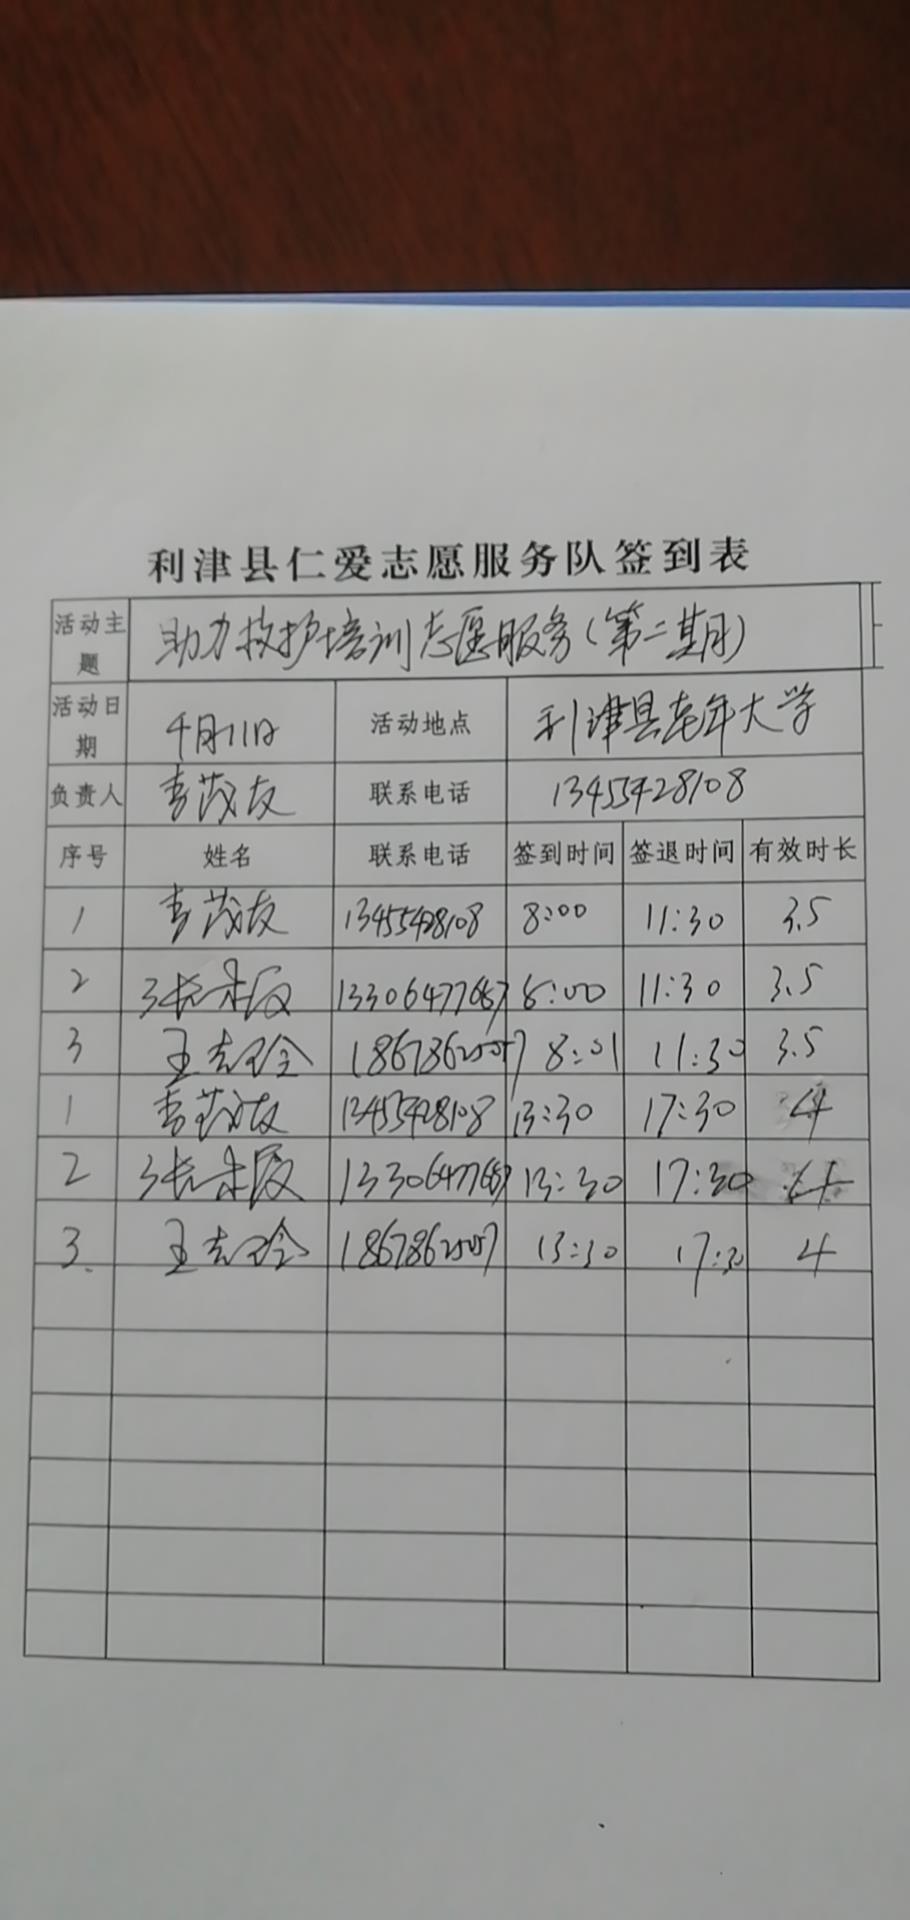 利津县仁爱志愿服务队签到表
活动主题 助力救护培训志愿服务(第二期)
活动日期 4月11日 活动地点 利津县老年大学
负责人 李茂友 联系电话 13455428108
序号 姓名 联系电话 签到时间 签退时间 有效时长
1 李茂友 13455428108 8:00 11:30 3.5
2 13306477687 8:00 11:30 3.5
3 王志玲 8:01 11:30 3.5
1 李茂友 13455428108 13:30 17:30 4
2 13:30 17:30 4
3 王志玲 13:30 17:30 4